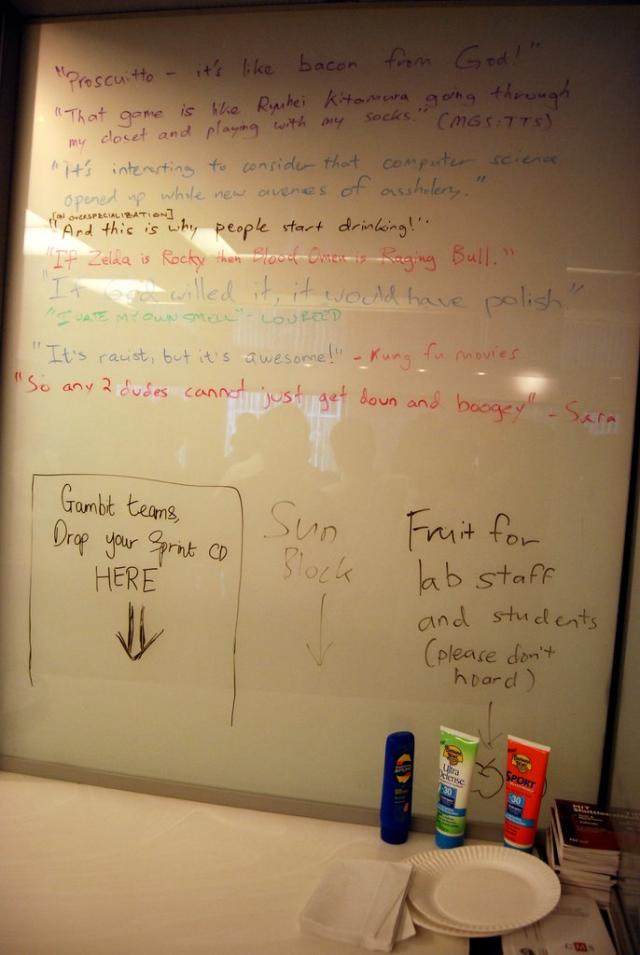 "Proscuitto - it's like bacon from God!"
"That game is like Ryuhei Kitamura going through
my closet and playing with my socks." (MGS:TTS)
"It's interesting to consider that computer science
opened up whole new avenues of assholery."
[ON OVERSPECIALIZATION]
"And this is why people start drinking!"
"If Zelda is Rocky then Blood Omen is Raging Bull."
"If God willed it, it would have polish"
"I HATE MY OWN SMELL" - LOU REED
"It's racist, but it's awesome!" - Kung fu movies
"So any 2 dudes cannot just get down and boogey" - Sara
Gambit teams,
Drop your Sprint CD
HERE
Sun
Block
Fruit for
lab staff
and students
(please don't
hoard)
Ultra
Defense
30
SPORT
30
MIT
CMS